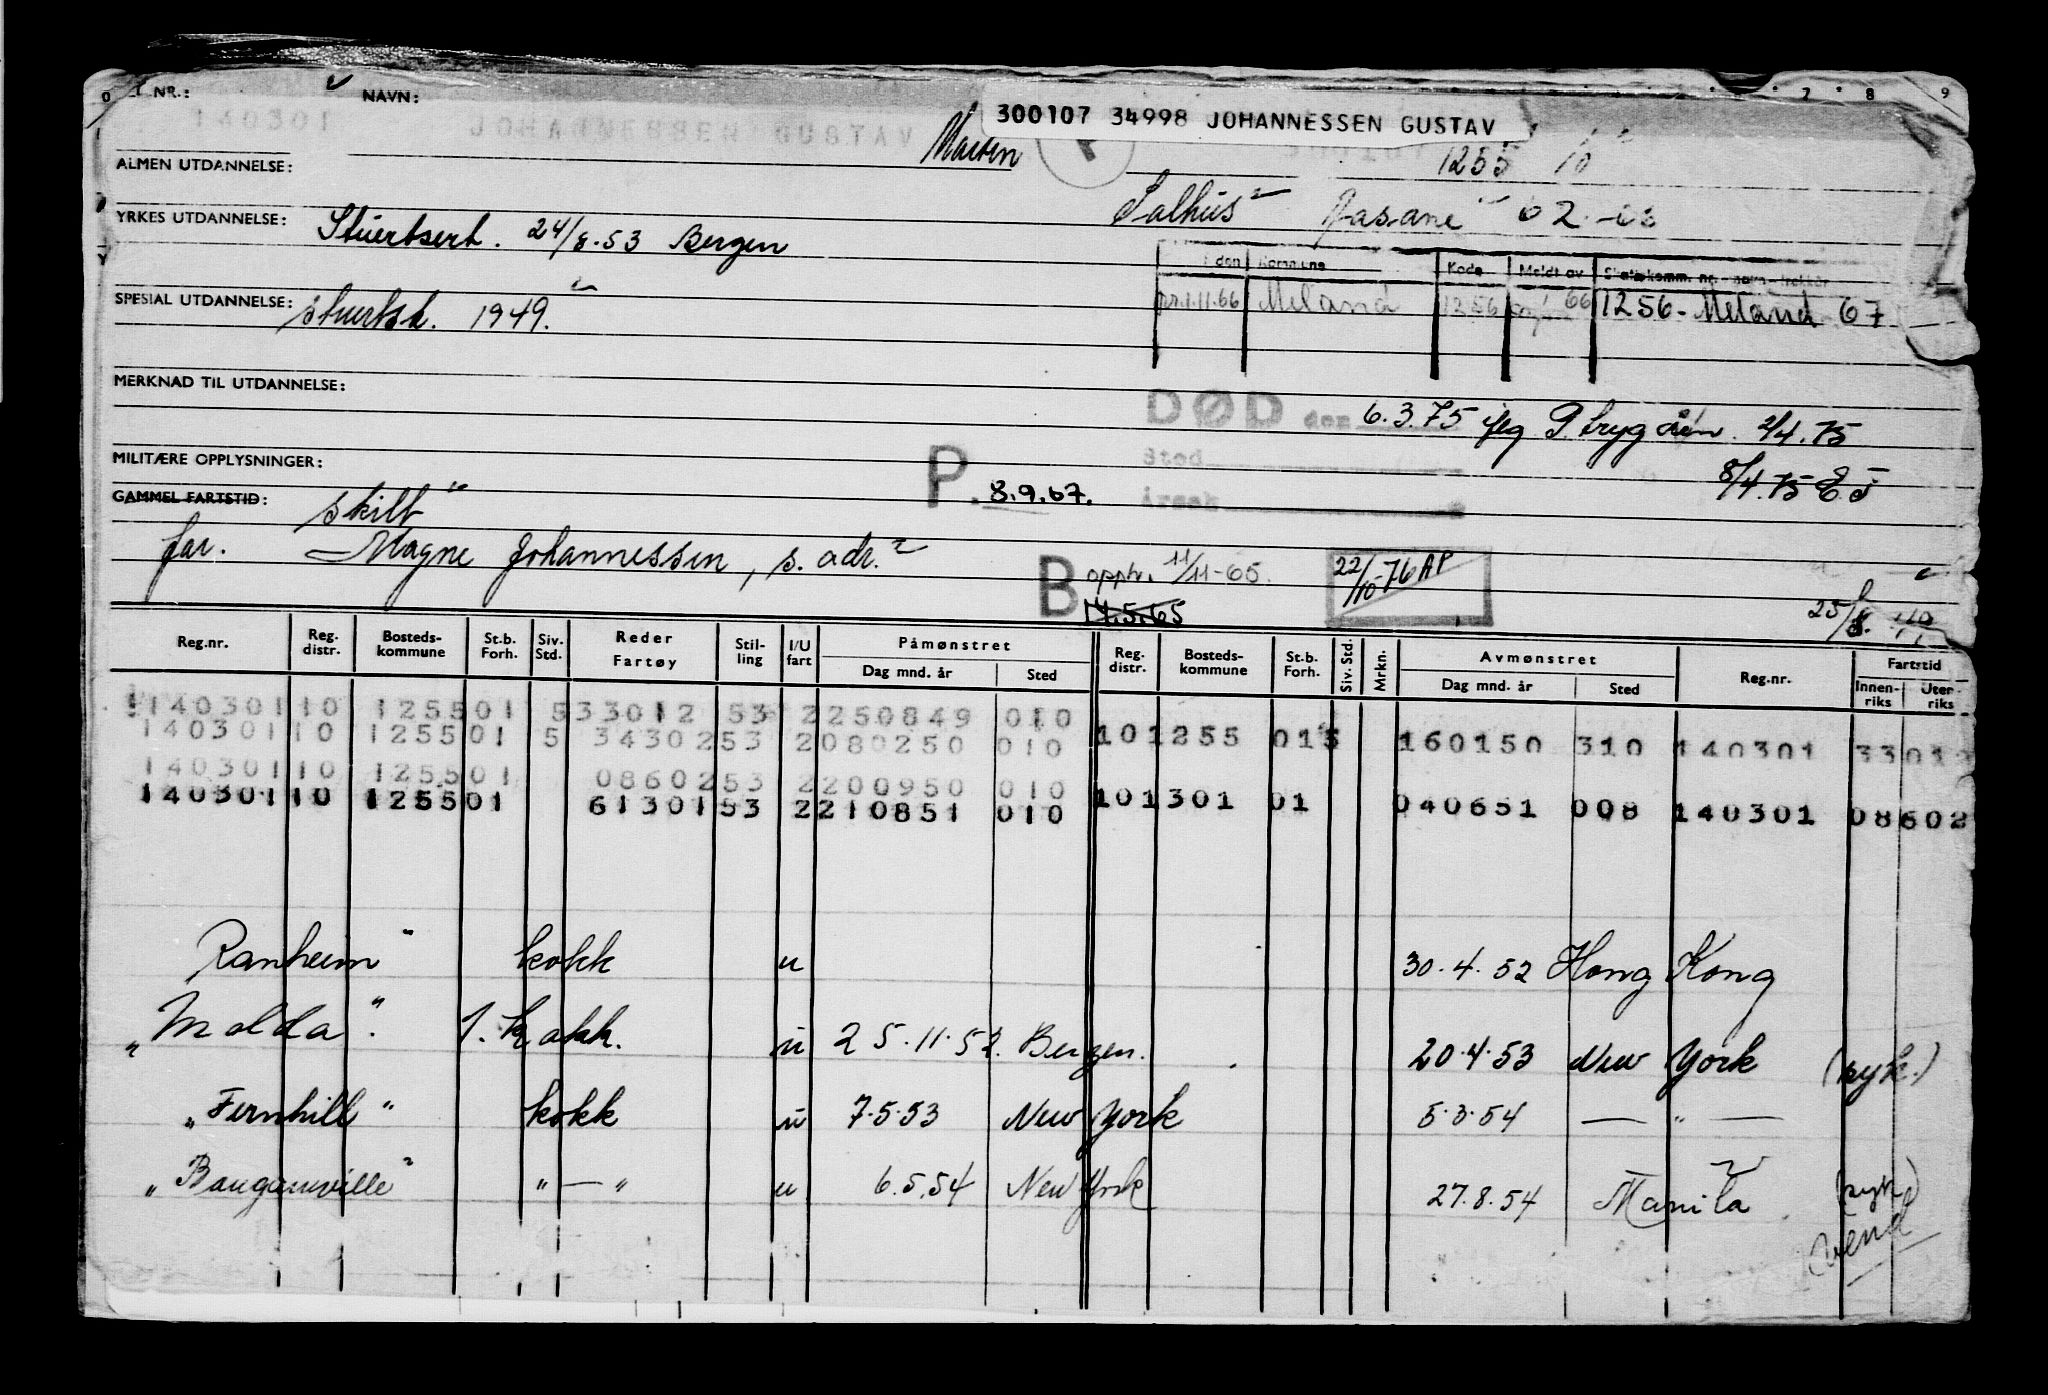 NR.: NAVN:
140301 JOHANNESSEN GUSTAV
300107 34998 JOHANNESSEN GUSTAV
1255 10
ALMEN UTDANNELSE:
YRKES UTDANNELSE: Stuertsert. 24/8.53 Bergen
Salhus Åsane 62-63
I den Kommune Kode Meldt av Skattekomm. nr. - navn - trekkår
pr.1.11.66 Meland 1256 66 1256 - Meland 67
SPESIAL UTDANNELSE: stuertsk. 1949.
MERKNAD TIL UTDANNELSE:
DØD den 6.3.75 2/4.75
Sted
8/4.75
Årsak
MILITÆRE OPPLYSNINGER:
P. 8.9.67.
GAMMEL FARTSTID: skilt
far. Magne Johannessen, s. adr.
B opph. 11/11-65.
14.5.65
22/10-76 AP
25/8.
Reg.nr. Reg. distr. Bosteds-kommune St.b. Forh. Siv. Std. Reder Fartøy Stil-ling I/U fart Påmønstret Dag mnd. år Sted Reg. distr. Bosteds-kommune St.b. Forh. Siv. Std. Mrkn. Avmønstret Dag mnd. år Sted Reg.nr. Fartstid Innen-riks Uten-riks
140301 10 1255 01 5 33012 53 2 250849 010
140301 10 1255 01 5 34302 53 2 080250 010 10 1255 01 5 160150 310 140301 33012
140301 10 1255 01 08602 53 2 200950 010
140301 10 1255 01 61301 53 2 210851 010 10 1301 01 040651 008 140301 08602
Ranheim" kokk u 30.4.52 Hong Kong
"Molda". 1. kokk. u 25.11.52. Bergen. 20.4.53 New York (syk.)
"Fernhill" kokk u 7.5.53 New York 5.3.54 — " —
"Bougainville" " — " u 6.5.54 New York 27.8.54 Manila (syk)
(vend